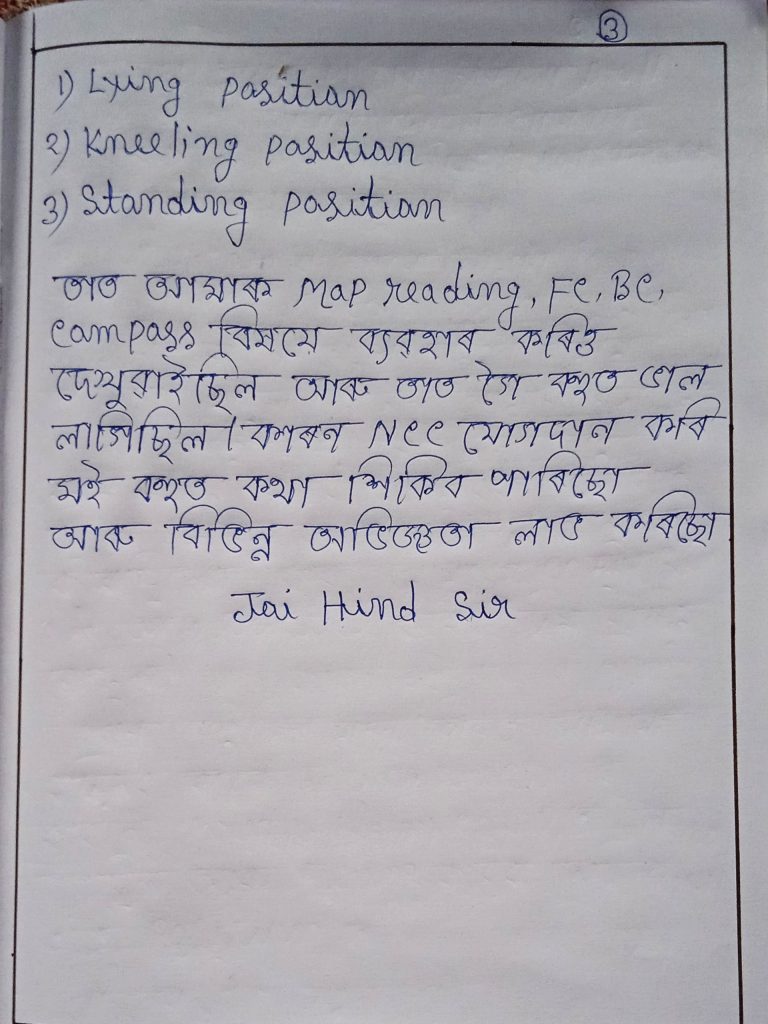 3
1) Lying position
2) Kneeling position
3) Standing position
তাত আমাক map reading, FC, BC,
compass বিষয়ে ব্যৱহাৰ কৰিও
দেখুৱাইছিল আৰু তাত গৈ বহুত ভাল
লাগিছিল। কাৰণ NCC যোগদান কৰি
মই বহুত কথা শিকিব পাৰিছো
আৰু বিভিন্ন অভিজ্ঞতা লাভ কৰিছো
Jai Hind Sir